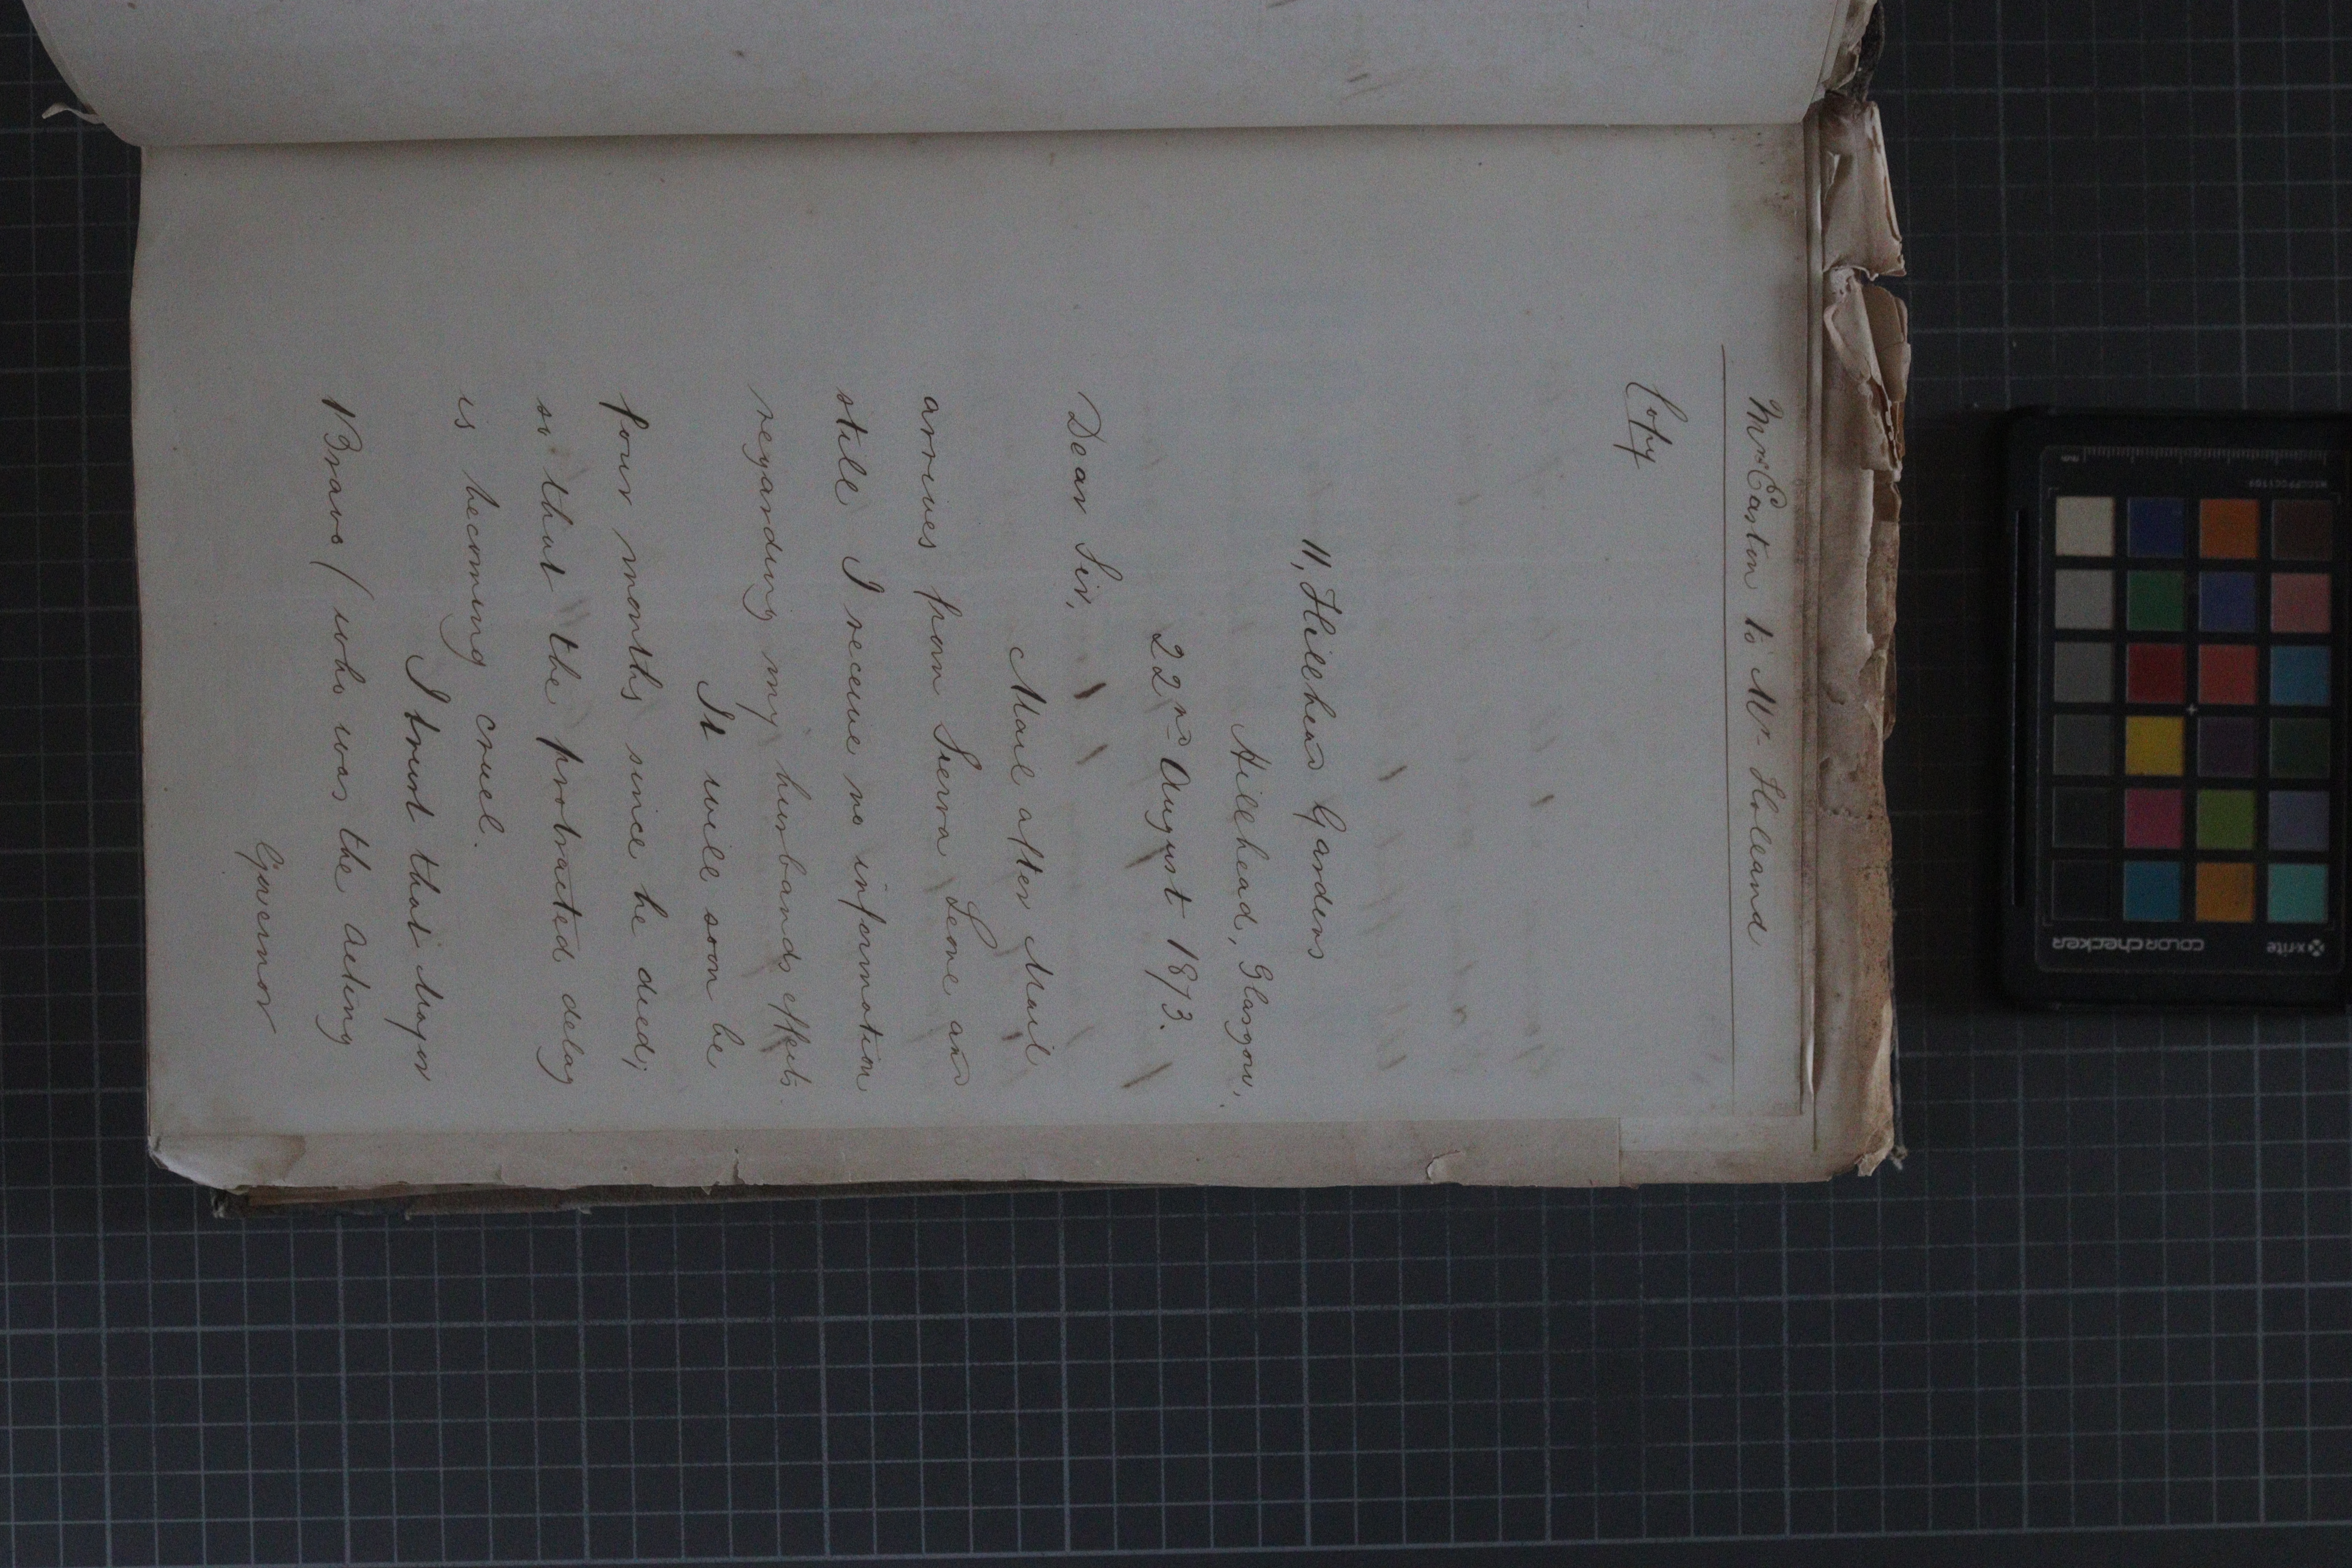 Mrs Easton to Mr Holland
Copy
11, Hillhead Gardens
Hillhead, Glasgow,
22nd August 1873.
Dear Sir,
Mail after Mail
arrives from Sierra Leone and
still I receive no information
regarding my husbands effects.
It will soon be
four months since he died;
so that the protracted delay
is becoming cruel.
I trust that Major
Bravo (who was the acting
Governor
x-rite
colorchecker